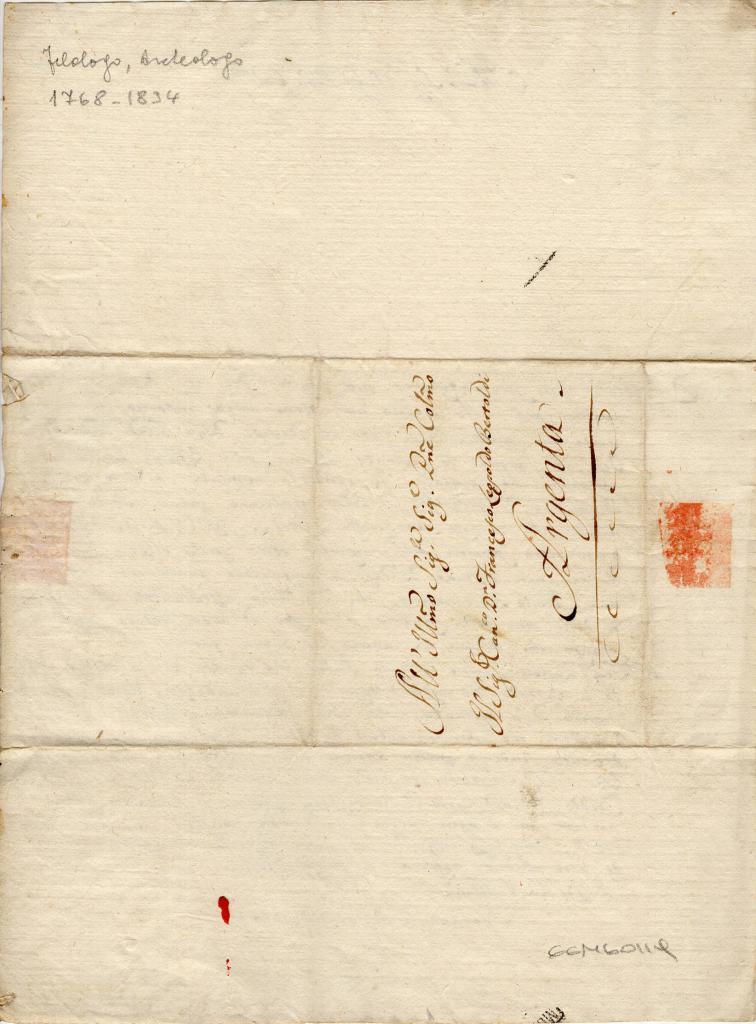 Filologo, Archeologo
1768-1834
All' Illmo Sigr Sig. Pne Colmo
Il Sigr Can.co Dr. Francesco Leopoldo Bertoldi
Argenta